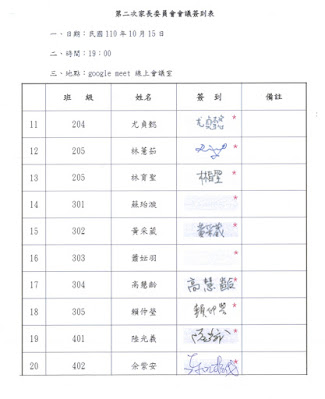 第二次家長委員會會議簽到表
一、日期：民國110年10月15日
二、時間：19：00
三、地點：google meet 線上會議室
班 級 姓名 簽 到 備註
11 204 尤貞懿 *
12 205 林蕙茹 *
13 205 林育聖 *
14 301 蘇珆漩 *
15 302 黃采葳 黃采葳 *
16 303 蕭妘羽 *
17 304 高慧齡 高慧齡 *
18 305 賴仲瑩 賴仲瑩 *
19 401 陸光義 *
20 402 余紫安 *